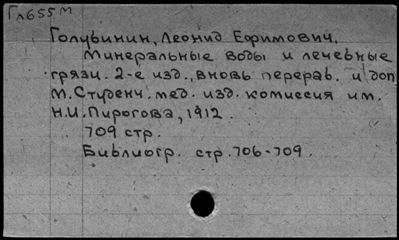 Гл655м
Голубинин, Леонид Ефимович.
Минеральные воды и лечебные
грязи. 2-е изд., вновь перераб. и доп.
М. Студенч. мед. изд. комиссия им.
Н.И. Пирогова, 1912.
709 стр.
Библиогр. стр. 706-709.